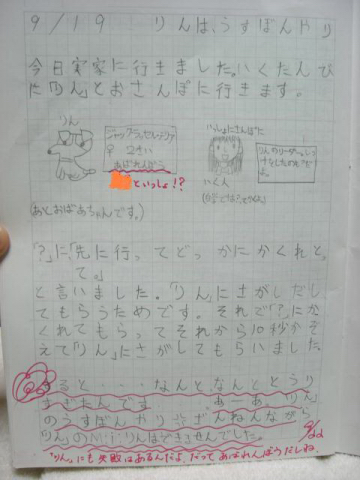 9/19 りんは、うすぼんやり
今日実家に行きました。いくたんび
に「りん」とおさんぽに行きます。
りん
ジャックラッセルテリア
♀ 2さい
あばれんぼう
といっしょ!?
いく人
(あとおばあちゃんです。)
「?」に、「先に行ってどっかにかくれと
て。」
と言いました。「りん」にさがしだし
てもらうためです。それで「?」にか
くれてもらってそれから10秒かぞ
えて「りん」にさがしてもらいました。
すると・・・なんとなんととうり
すぎたんです あーあ、「りん」
のうすぼんやり ざんねんながら
「りん」の
「りん」にも失敗はあるんだよ、だってあばれんぼうだしね。